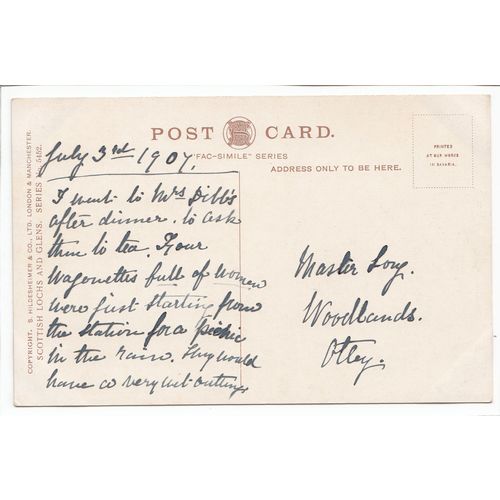 POST CARD.
"FAC-SIMILE" SERIES
ADDRESS ONLY TO BE HERE.
PRINTED
AT OUR WORKS
IN BAVARIA
COPYRIGHT. S. HILDESHEIMER & CO., LTD. LONDON & MANCHESTER.
SCOTTISH LOCHS AND GLENS. SERIES No. 5452.
July 3rd 1907.
I went to Mrs Dibb's
after dinner. to ask
them to tea. Four
Wagonettes full of women
were just starting from
the station for a picnic
in the rain. They would
have a very wet outing
Master Long.
Woodlands.
Otley.